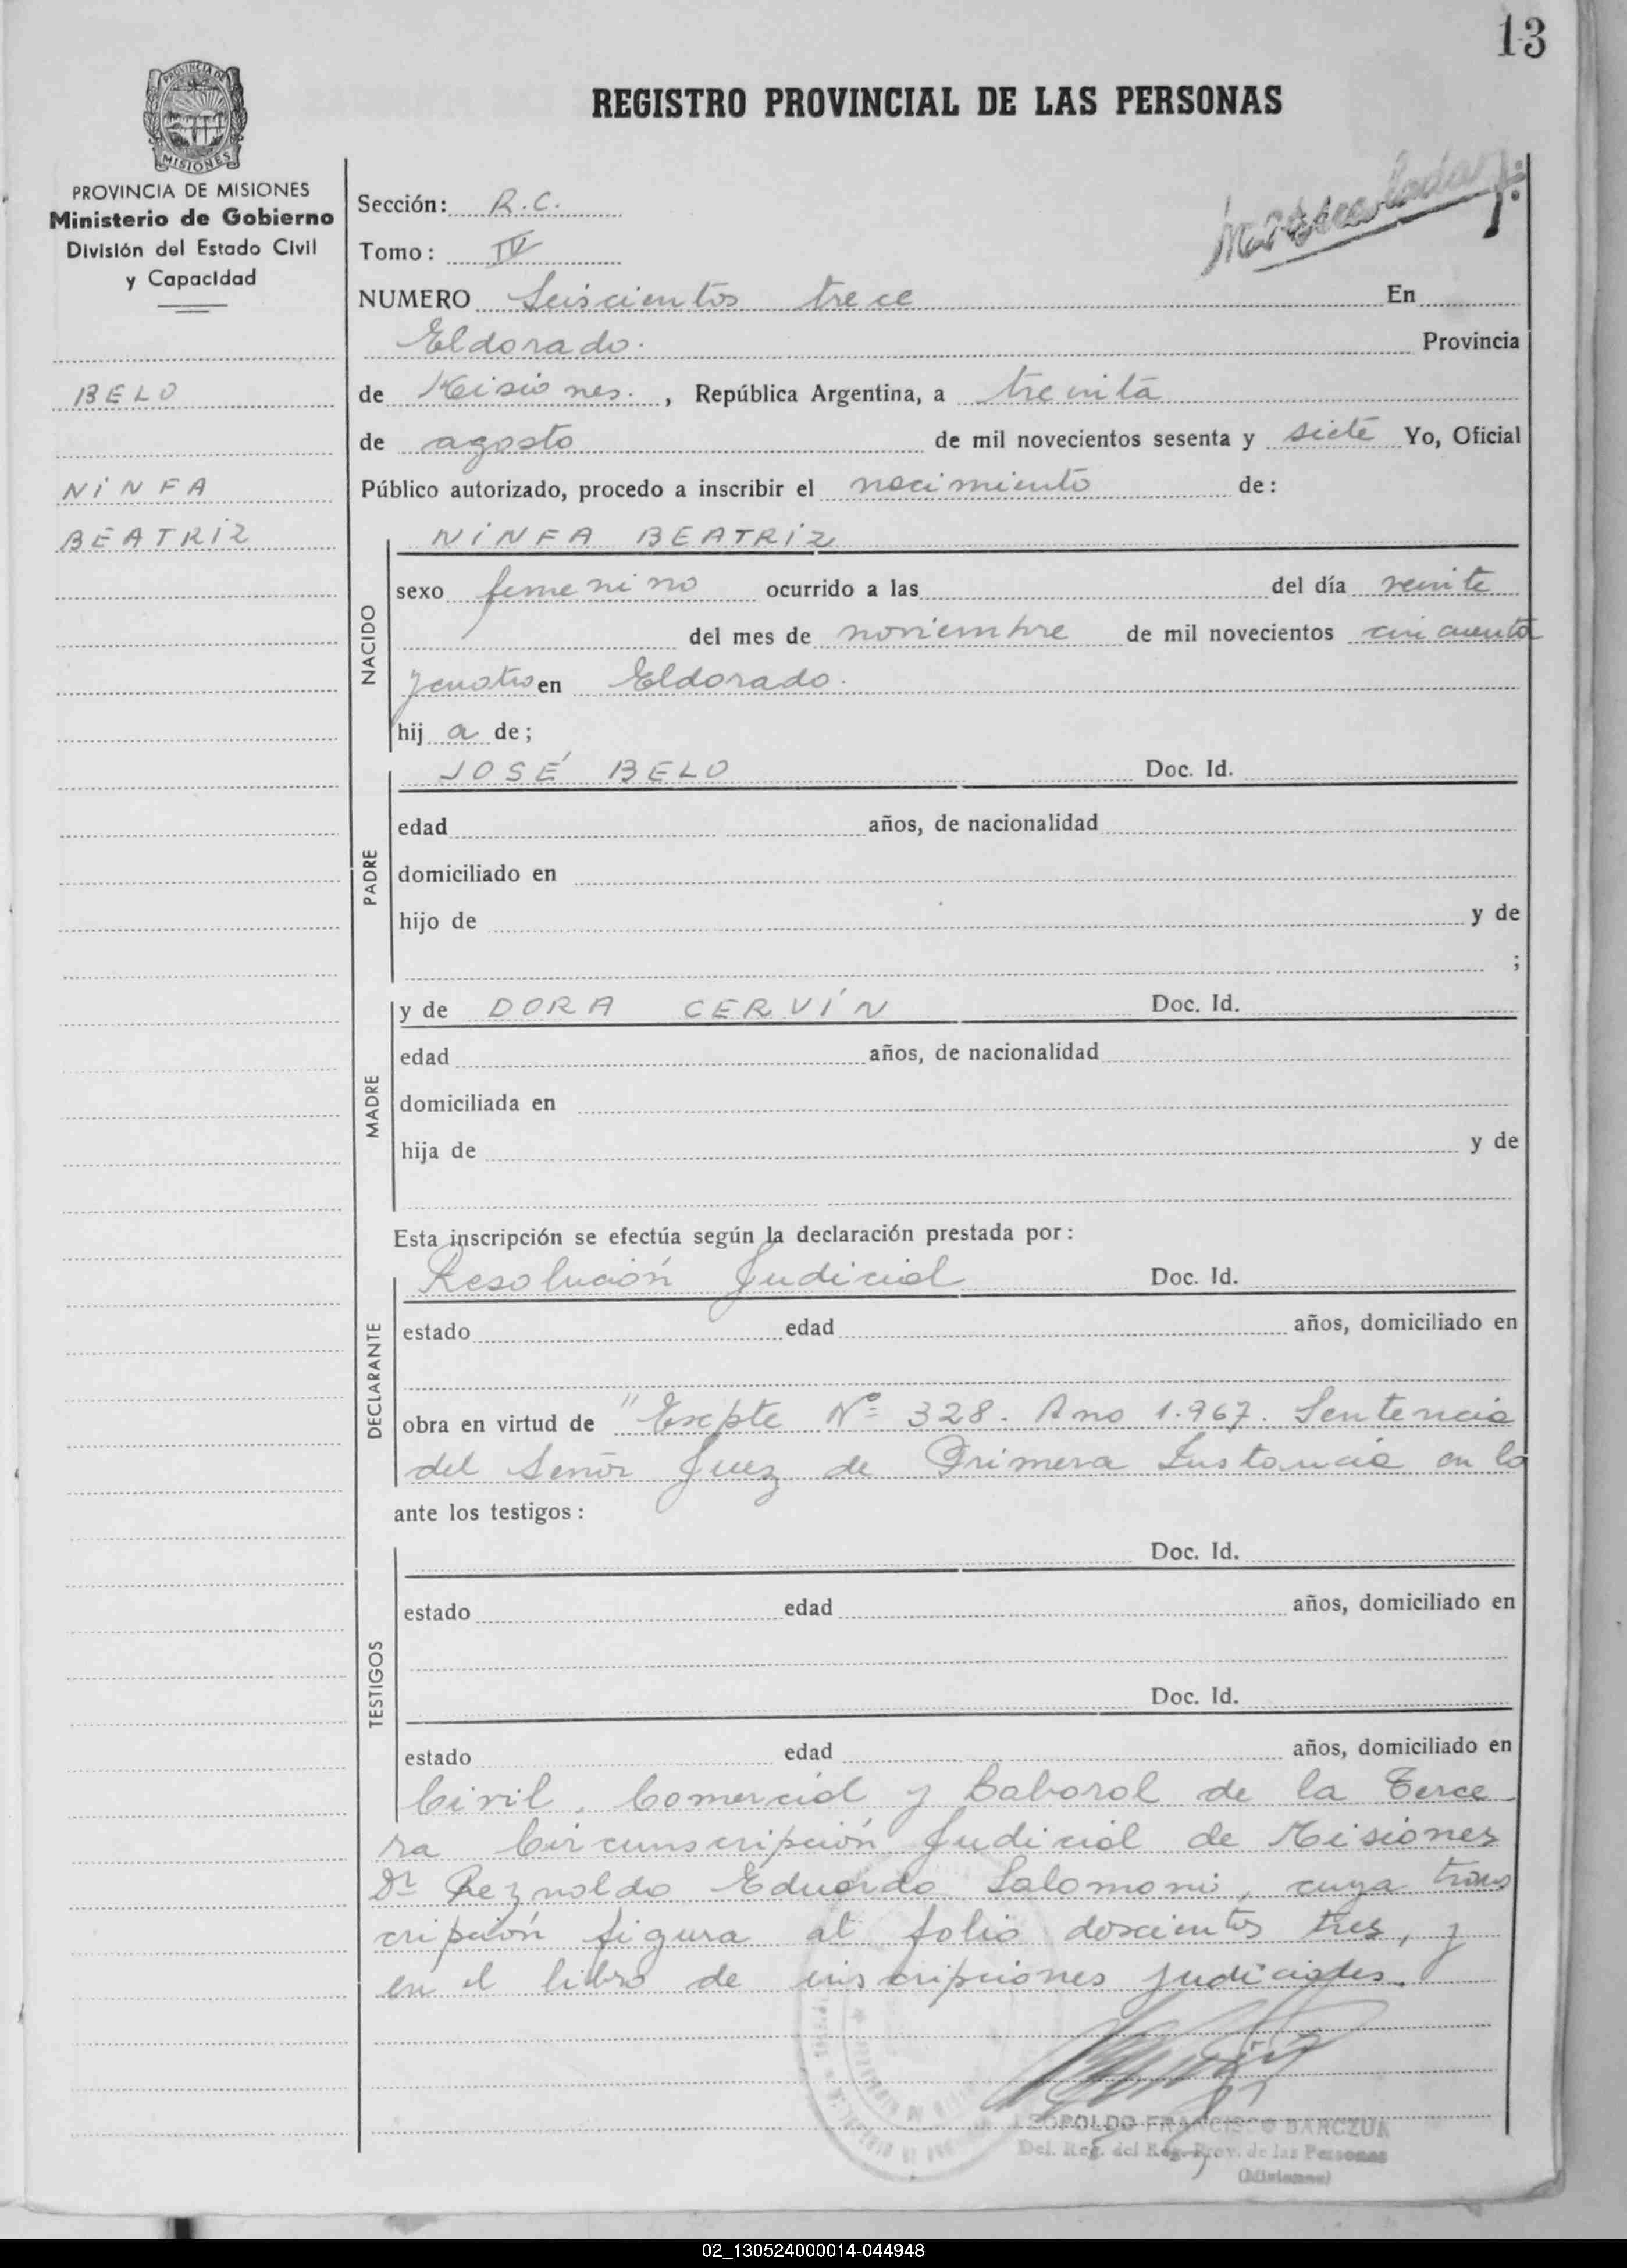 13
REGISTRO PROVINCIAL DE LAS PERSONAS
PROVINCIA DE
MISIONES
PROVINCIA DE MISIONES
Ministerio de Gobierno
División del Estado Civil
y Capacidad
BELO
NINFA
BEATRIZ
Sección: R.C.
Tomo: IV
NUMERO Seiscientos trece En
Eldorado. Provincia
de Misiones. , República Argentina, a treinta
de agosto de mil novecientos sesenta y siete Yo, Oficial
Público autorizado, procedo a inscribir el nacimiento de:
NACIDO
NINFA BEATRIZ
sexo femenino ocurrido a las del día veinte
del mes de noviembre de mil novecientos cincuenta
y cuatro en Eldorado.
hij a de;
PADRE
JOSÉ BELO Doc. Id.
edad años, de nacionalidad
domiciliado en
hijo de y de
;
MADRE
y de DORA CERVÍN Doc. Id.
edad años, de nacionalidad
domiciliada en
hija de y de
Esta inscripción se efectúa según la declaración prestada por:
DECLARANTE
Resolución Judicial Doc. Id.
estado edad años, domiciliado en
obra en virtud de "Expte Nº 328. Año 1.967. Sentencia
del Señor Juez de Primera Instancia en lo
ante los testigos:
TESTIGOS
Doc. Id.
estado edad años, domiciliado en
Doc. Id.
estado edad años, domiciliado en
Civil, Comercial y Laboral de la Terce
ra Circunscripción Judicial de Misiones
Dr Reynoldo Eduardo Salomoni, cuya trans
cripción figura al folio doscientos tres, y
en el libro de inscripciones judiciales.
LEOPOLDO FRANCISCO BARCZUK
Del. Reg. del Reg. Prov. de las Personas
(Misiones)
02_130524000014-044948